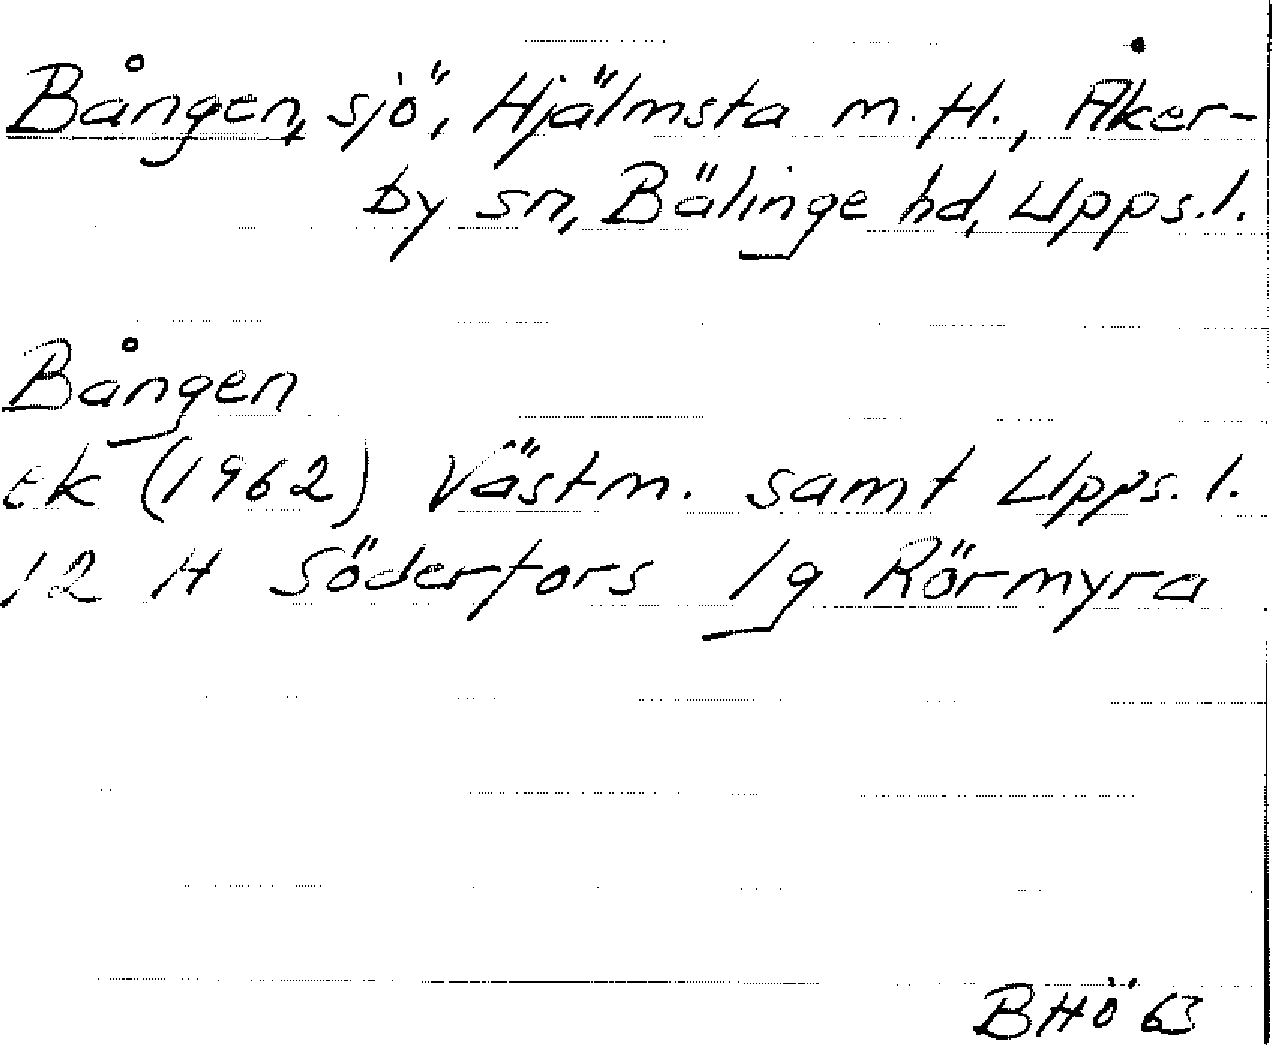 Bången, sjö, Hjälmsta m.fl., Åker-
by sn, Bälinge hd, Upps.l.
Bången
Ek (1962) Västm. samt Upps.l.
12 H Söderfors 1g Rörmyra
BHÖ 63